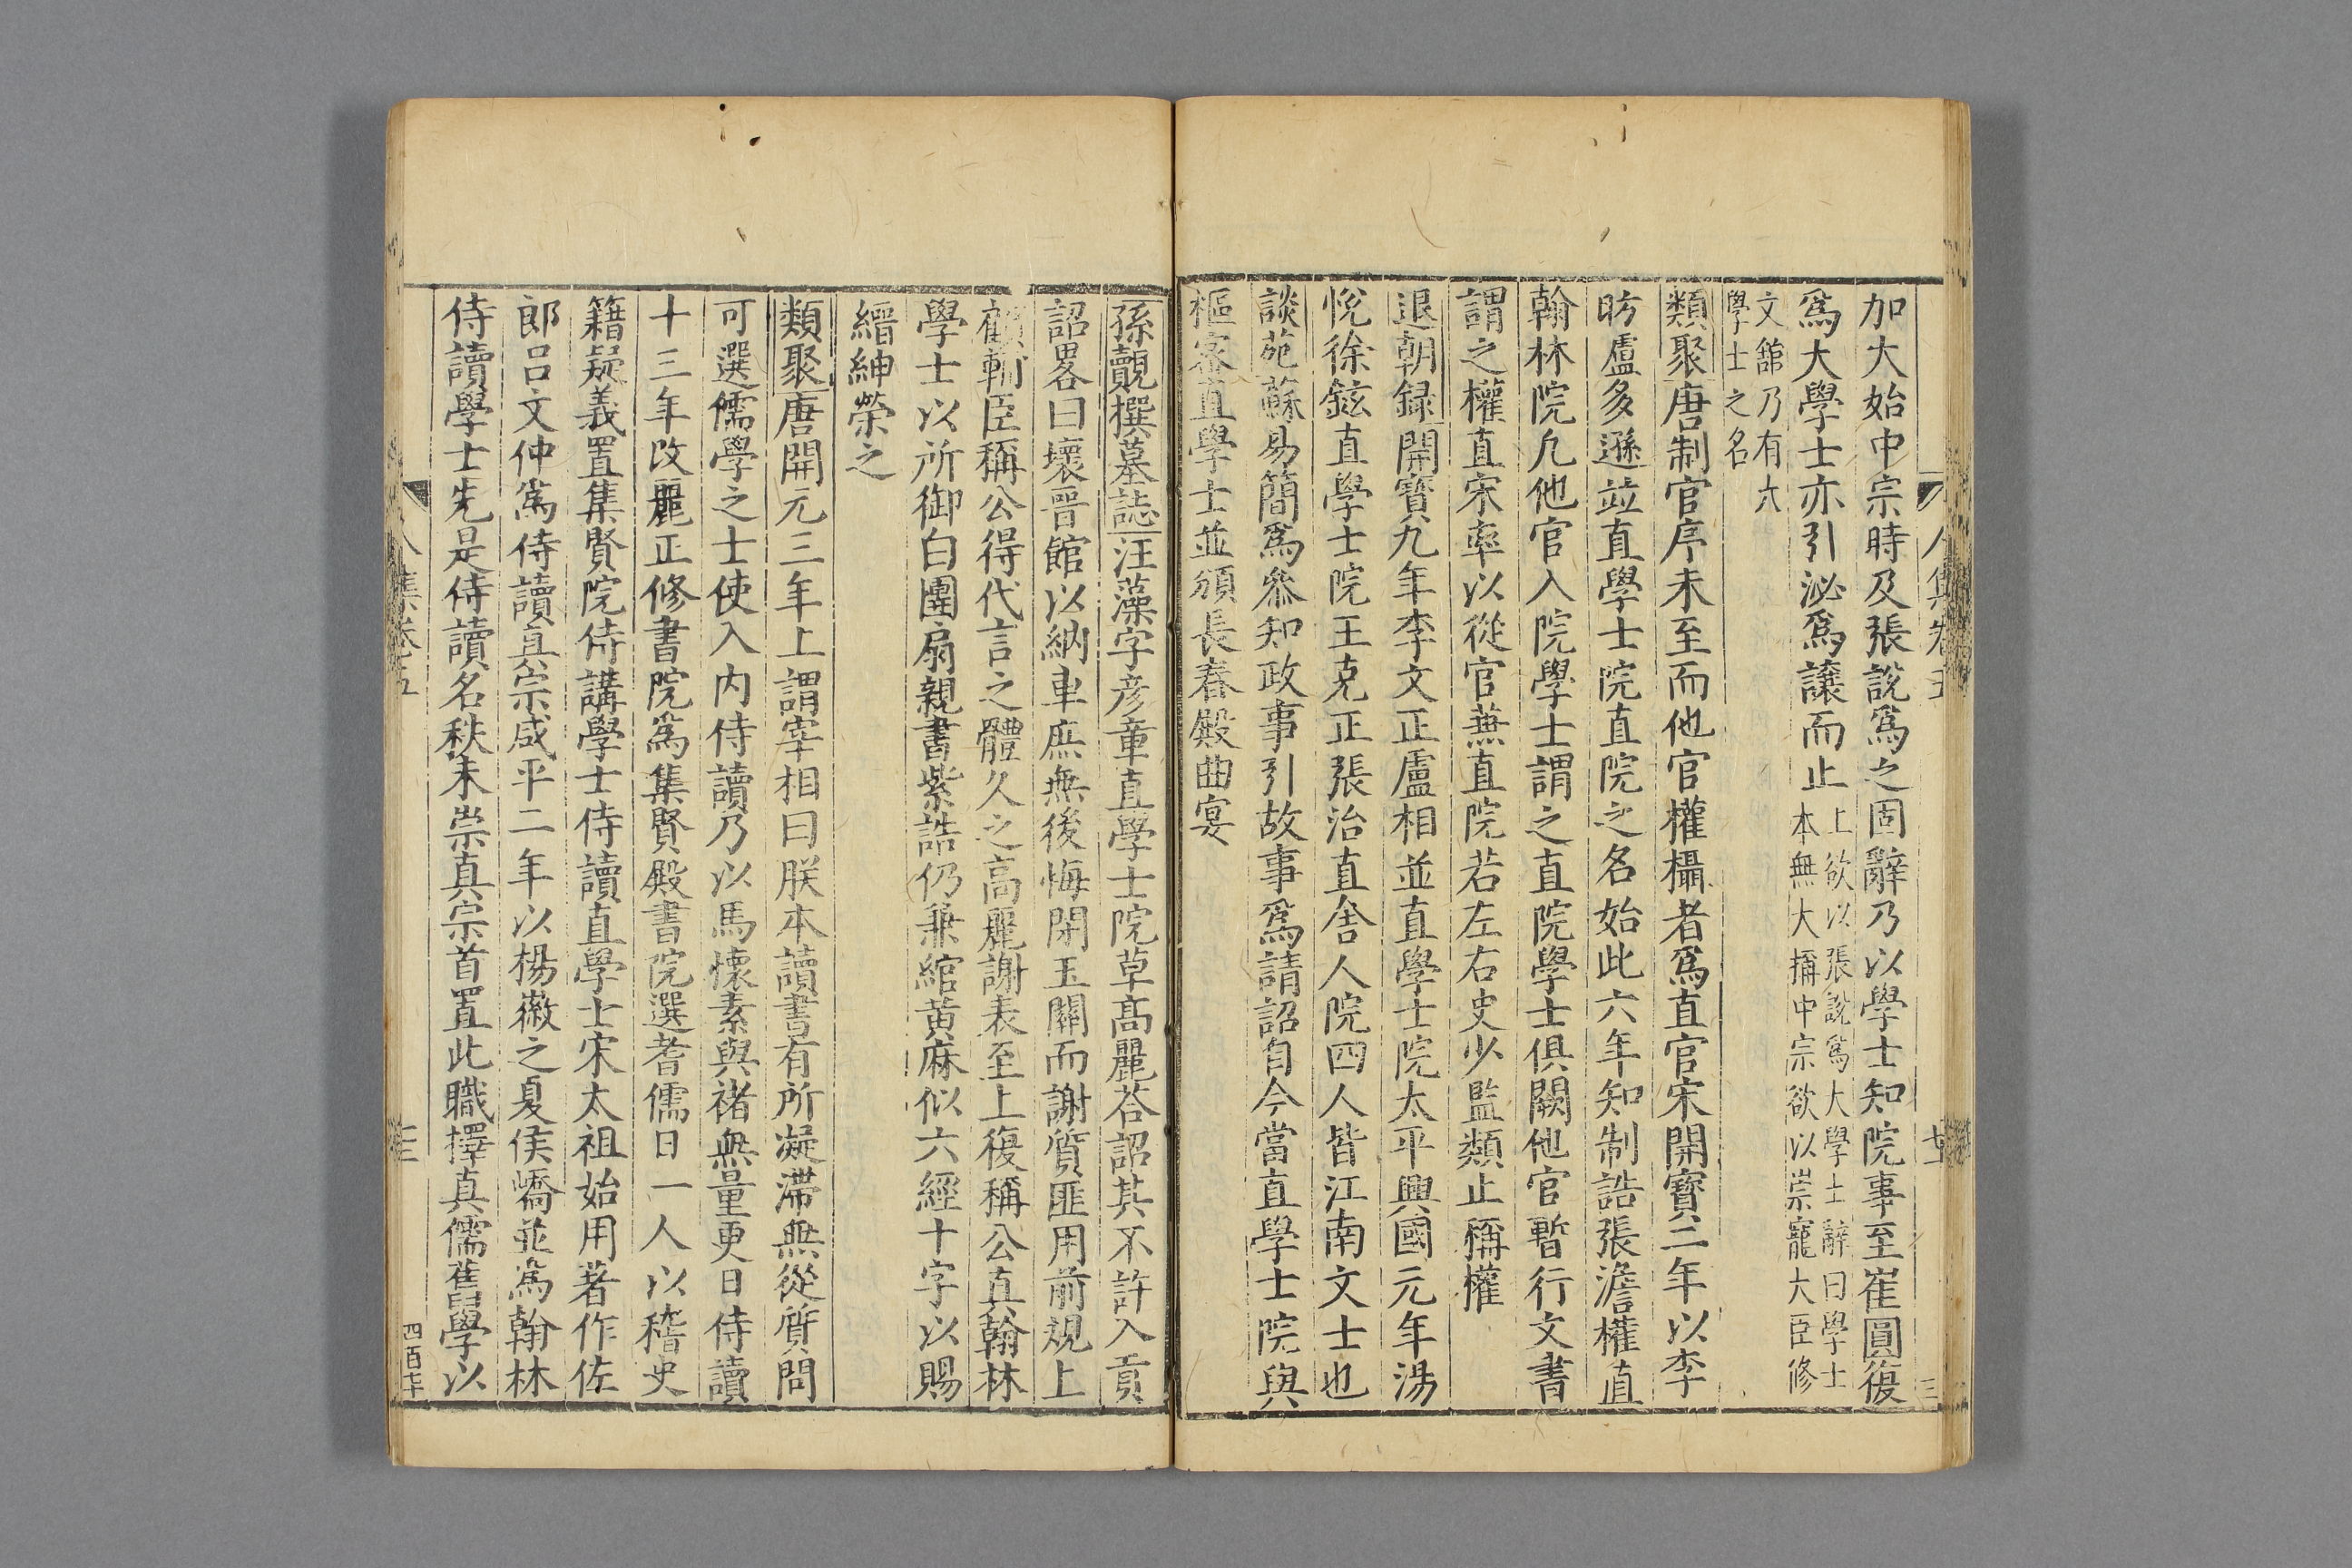 加大始中宗時及張說爲之固辭乃以學士知院事至崔圓復
爲大學士亦引泌爲讓而止上欲以張說爲大學士辭曰學士
本無大稱中宗欲以崇寵大臣修
文舘乃有大
學士之名
類聚唐制官序未至而他官權攝者爲直官宋開寶二年以李
昉盧多遜並直學士院直院之名始此六年知制誥張澹權直
翰林院凡他官入院學士謂之直院學士俱闕他官暫行文書
謂之權直宋率以從官兼直院若左右史少監類止稱權
退朝録開寶九年李文正盧相並直學士院太平興國元年湯
悅徐鉉直學士院王克正張洎直舍人院四人皆江南文士也
談苑蘇易簡爲叅知政事引故事爲請詔自今當直學士院與
樞宻直學士並頒長春殿曲宴
孫覿撰墓誌汪藻字彦章直學士院草髙麗荅詔其不許入貢
詔畧曰壞晋館以納車庶無後悔閉玉關而謝質匪用前規上
顧輔臣稱公得代言之體久之高麗謝表至上復稱公真翰林
學士以所御白團扇親書紫誥仍兼綰黄麻似六經十字以賜
縉紳榮之
類聚唐開元三年上謂宰相曰朕本讀書有所凝滯無從質問
可選儒學之士使入内侍讀乃以馬懷素與褚無量更日侍讀
十三年改麗正修書院爲集賢殿書院選耆儒日一人以稽史
籍疑義置集賢院侍講學士侍讀直學士宋太祖始用著作佐
郎呂文仲爲侍讀真宗咸平二年以楊徽之夏侯嶠並爲翰林
侍讀學士先是侍讀名秩未崇真宗首置此職擇真儒舊學以
集卷五
四百七十